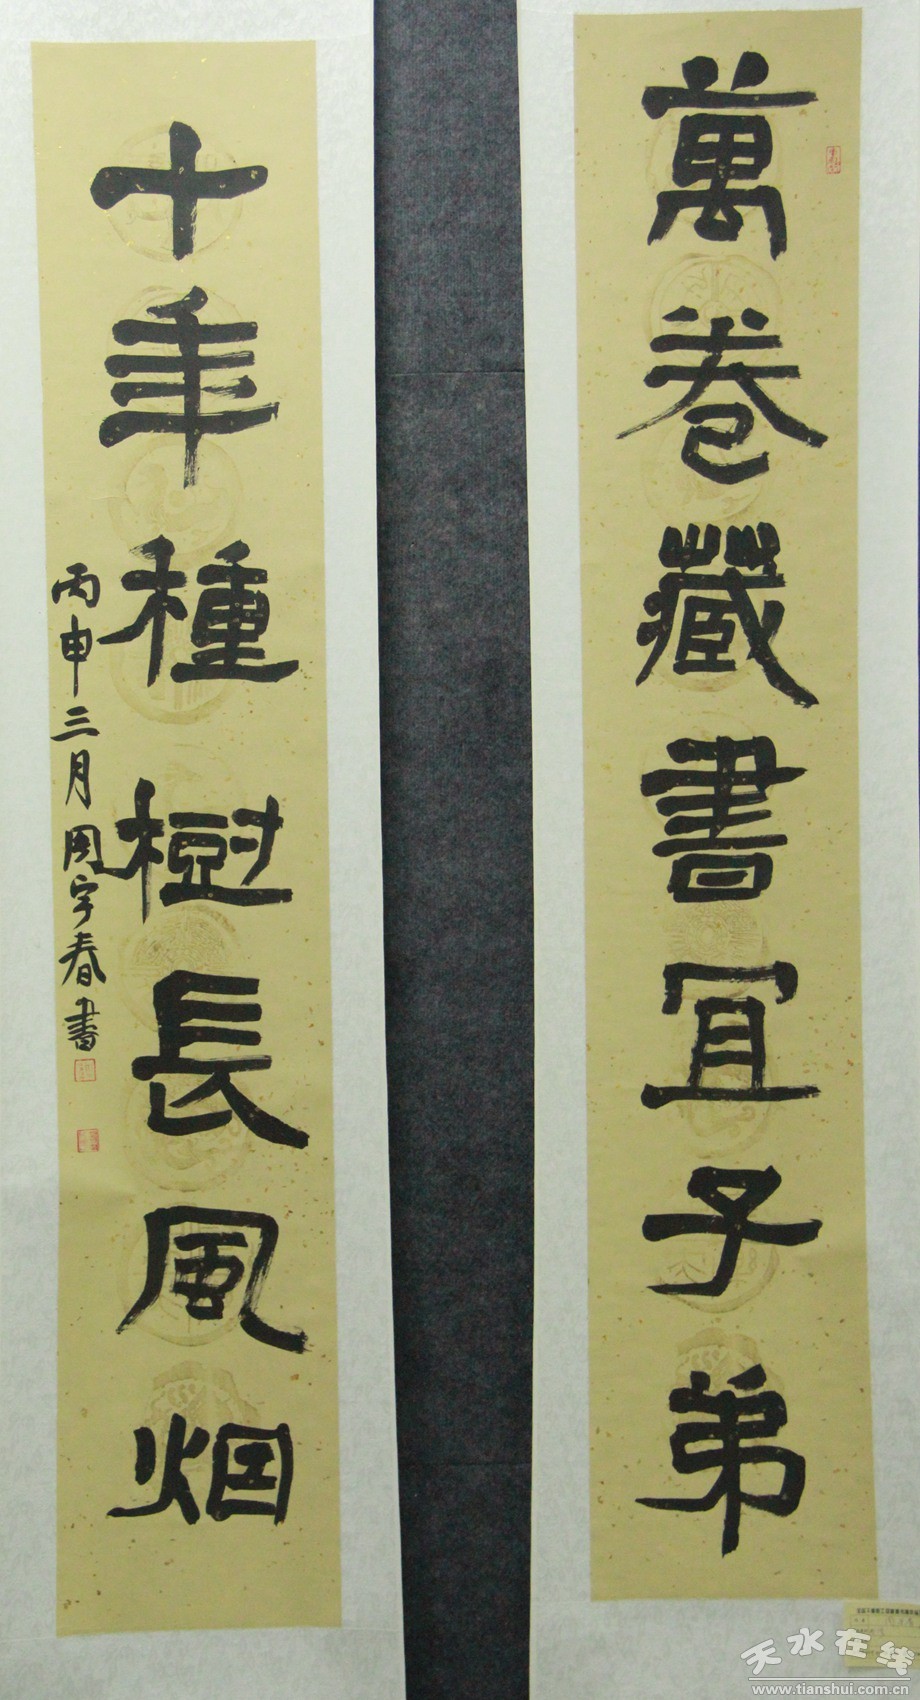 萬卷藏書宜子弟
十年種樹長風烟
丙申三月周宇春書
天水在线
www.tianshui.com.cn